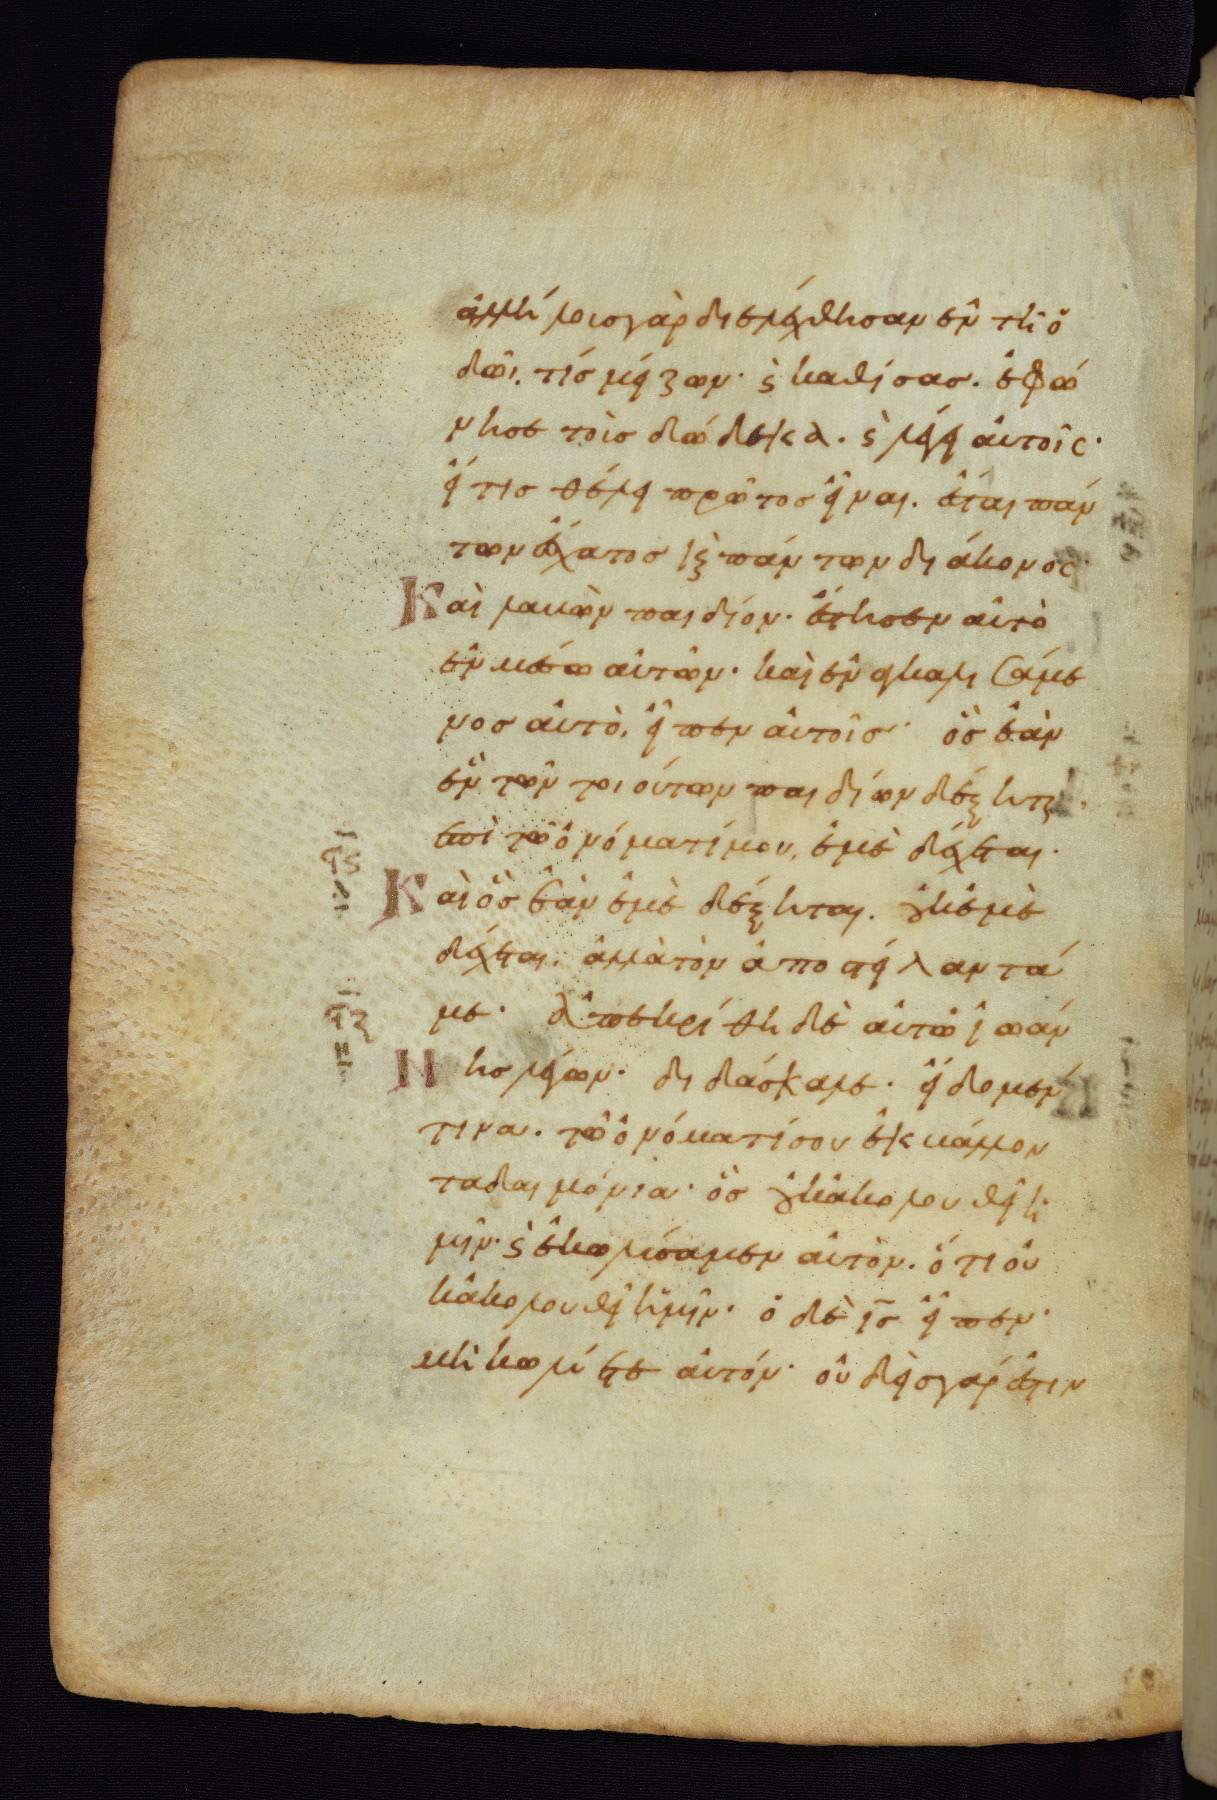 ἀλλήλοις γὰρ διελέχθησαν ἐν τῆ ὁ
δῶι, τίς μείζων· ϗ καθίσας. ἐφώ
νησε τοὺς δώδεκα. ϗ λέγει αὐτοῖς·
εἴ τις θέλει πρῶτος εἶναι. ἔσται πάν
των ἔσχατος ϗ πάντων διάκονος·
Καὶ λαβὼν παιδίον· ἔστησεν αὐτὸ
ἐν μέσω αὐτῶν· καὶ ἐναγκαλισάμε
νος αὐτὸ, εἶπεν αὐτοῖς· ὃς ἐὰν
ἓν τῶν τοιούτων παιδίων δέξηται
ἐπὶ τῶ ὀνόματί μου, ἐμὲ δέχεται·
Ϟϛ
Καὶ ὃς ἐὰν ἐμὲ δέξηται. οὐκ ἐμὲ
δέχεται, ἀλλὰ τὸν ἀποστείλαντά
ϟζ
με· ἀπεκρίθη δὲ αὐτῶ ὁ ἰωάν
Νης λέγων· διδάσκαλε· εἴδομέν
τινα. τῶ ὀνόματί σου ἐκβάλλον
τα δαιμόνια· ὃς οὐκ ἀκολουθεῖ ἡ
μῖν· ϗ ἐκωλύσαμεν αὐτὸν. ὅτι οὐ
κ ἀκολουθεῖ ἡμῖν· ὁ δὲ ι̅ς̅ εἶπεν·
μὴ κωλύετε αὐτόν· οὐδεὶς γάρ ἐστιν